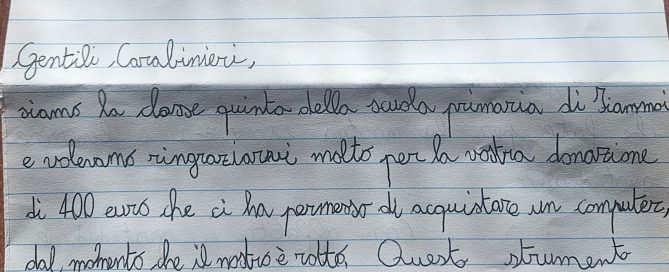 Gentili Carabinieri,
siamo la classe quinta della scuola primaria di
e volevamo ringraziarvi molto per la vostra donazione
di 400 euro che ci ha permesso di acquistare un computer,
dal momento che il nostro è rotto. Questo strumento